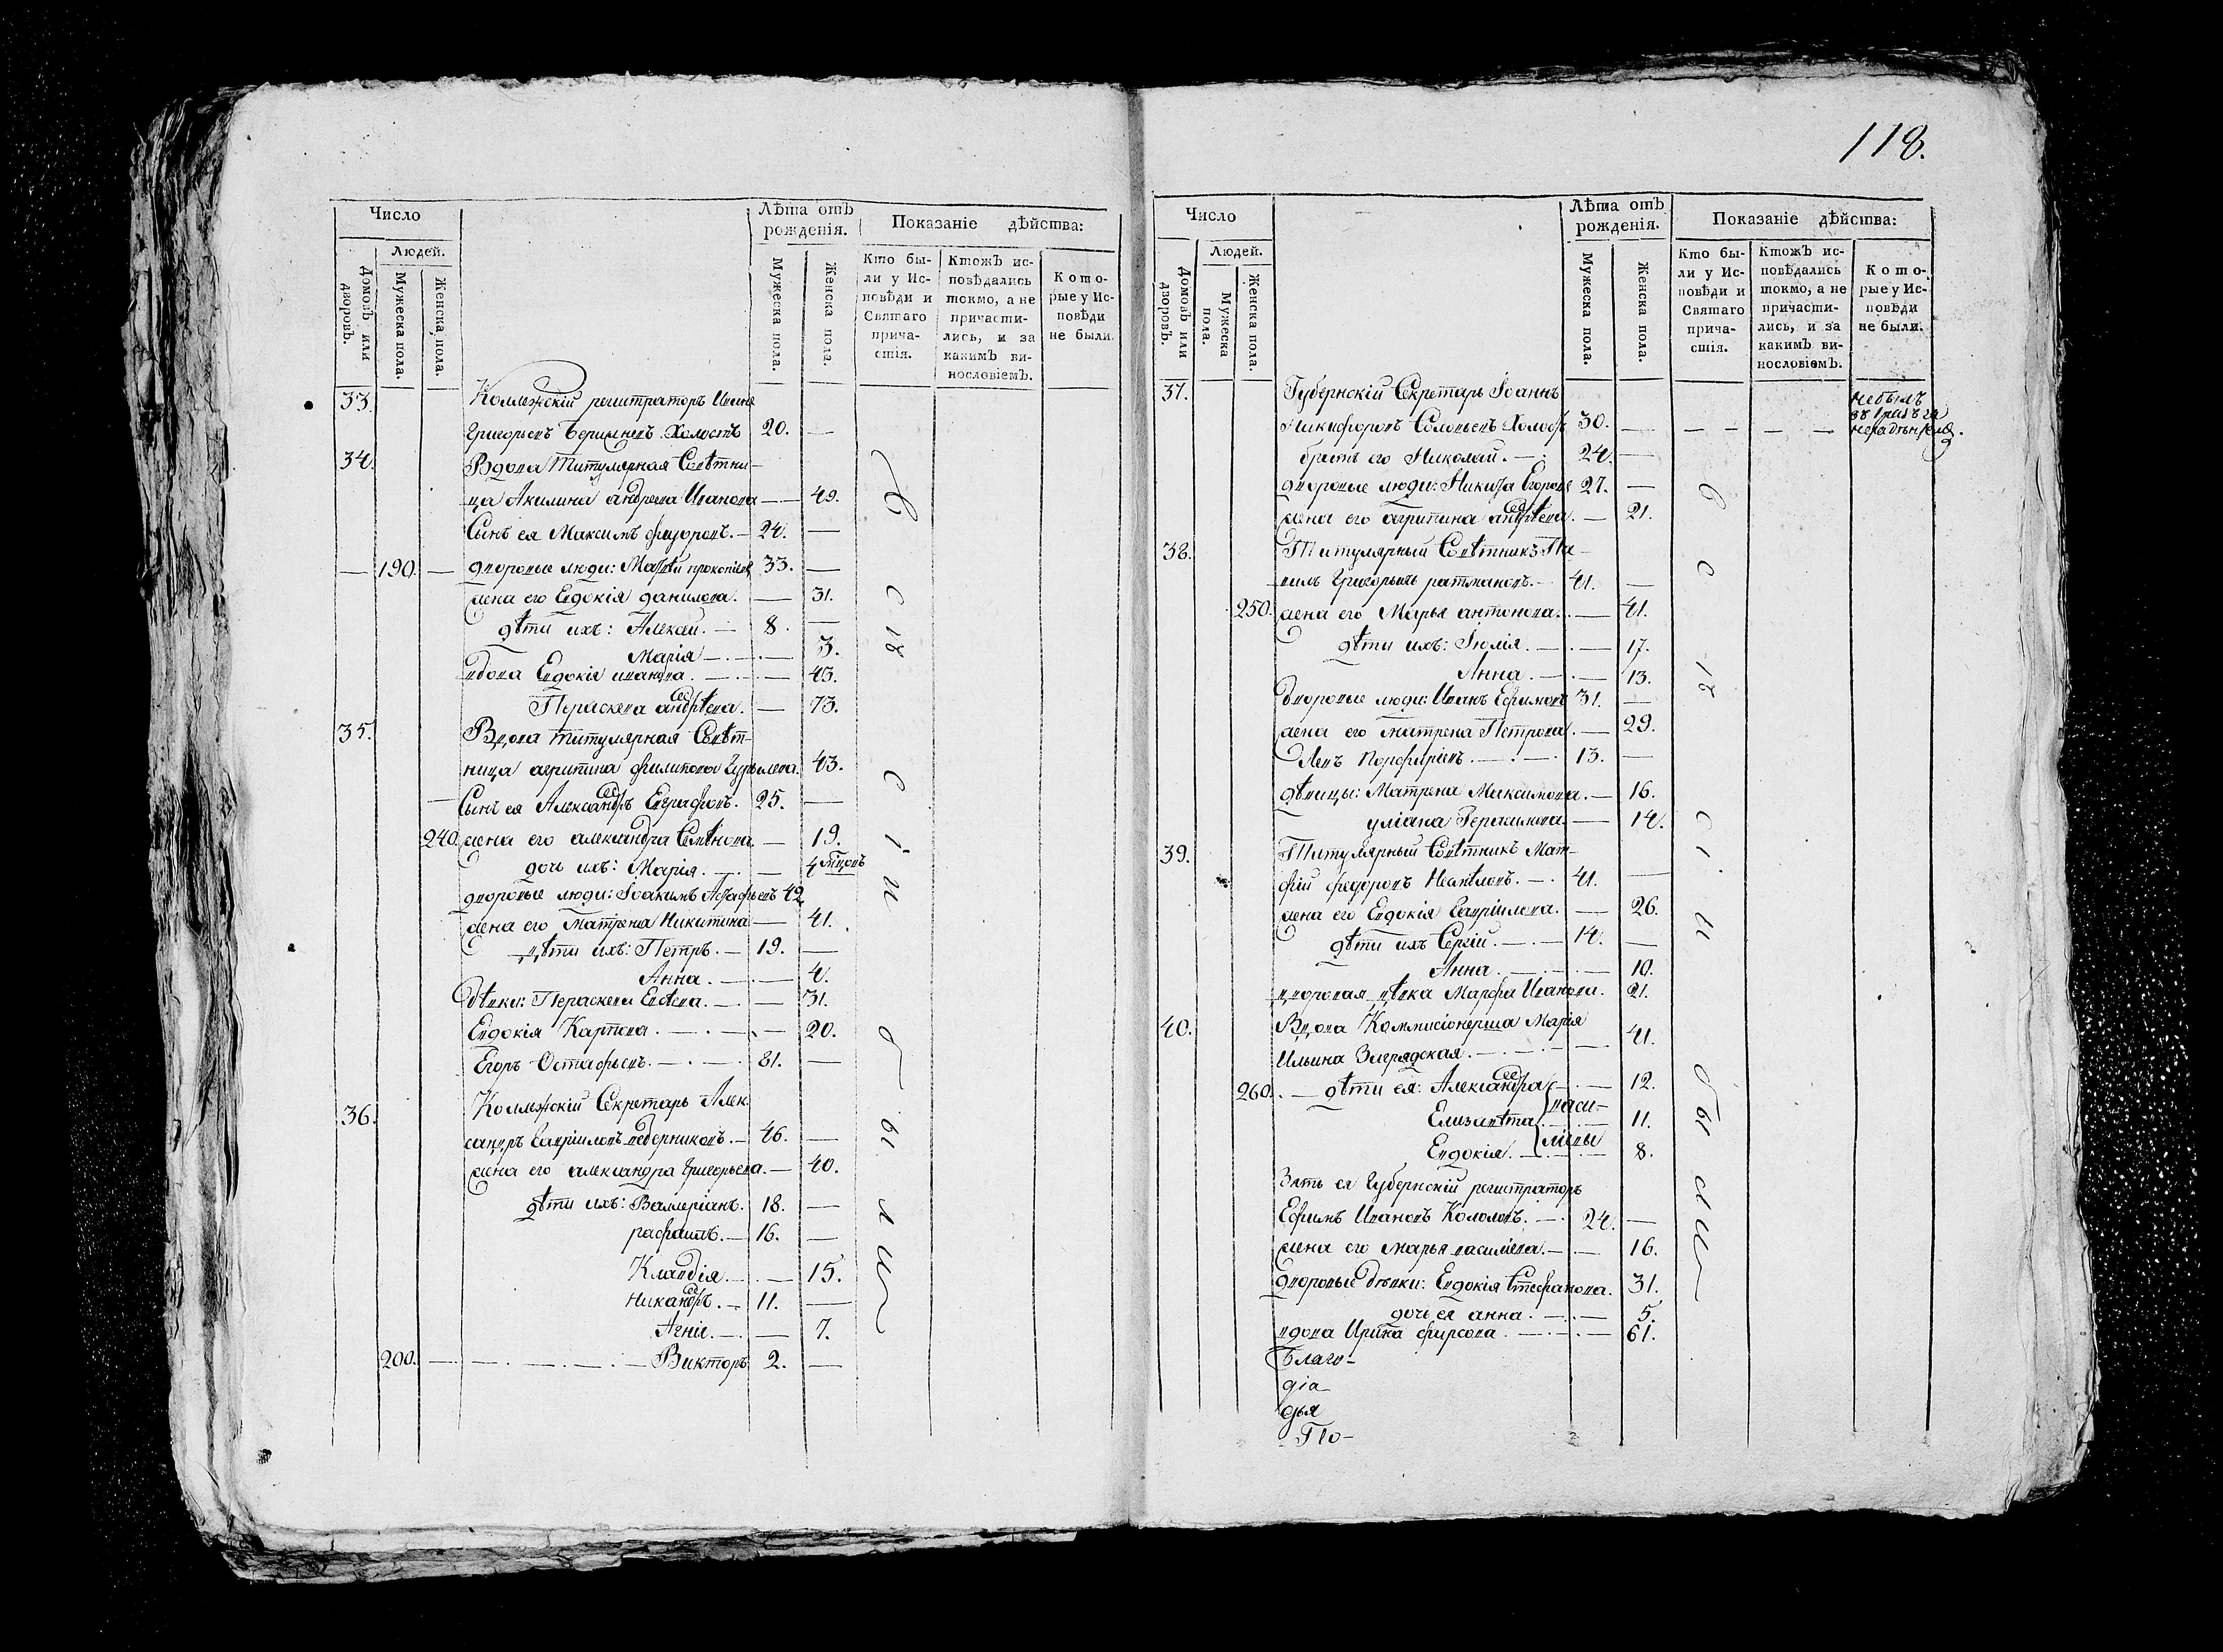 118.
Число
Лѣта отъ рожденія.
Показаніе дѣйства:
Людей.
Домовъ или дворовъ.
Мужеска пола.
Женска пола.
Мужеска пола.
Женска пола.
Кто были у Исповѣди и Святаго причастія.
Ктожъ исповѣдались токмо, а не причастились, и за какимъ винословіемъ.
Которые у Исповѣди не были.
33. Коллежскій регистраторъ Иванъ
Григорьевъ Холостъ 20. —
34. Вдова Титулярная Совѣтни-
ца Акилина андреева Иванова — 49.
Сынъ ея Максимъ федоровъ. — 24. —
— 190. — дворовые люди: прокопіевъ 33. —
жена его Евдокія данилова. — 31.
дѣти ихъ: Алексей. — 8. —
Марія — 3.
вдова Евдокія иванова. — 43.
Параскева андреева. — 73.
35. Вдова титулярная Совѣт-
ница агрипина филипова 43.
Сынъ ея Александръ Евграфовъ. 25. —
240. жена его александра Семенова. — 19.
дочь ихъ: Марія. — 4 мцовъ
дворовые люди: Іоакимъ 42.
жена его Матрена Никитина — 41.
дѣти ихъ: Петръ. — 19. —
Анна. — 4.
Дѣвки: Параскева — 31.
Евдокія Карпова. — 20.
Егоръ Остафьевъ. — 81. —
36. Коллежскій Секретарь Алек-
сандръ Гавріиловъ — 46. —
жена его александра Григорьева. — 40.
дѣти ихъ: Валеріанъ. 18. —
рафаилъ. — 16. —
Клавдія. — 15.
Никандръ. — 11. —
Агнія. — 7.
200. — Викторъ 2. —
Число
Лѣта отъ рожденія.
Показаніе дѣйства:
Людей.
Домовъ или дворовъ.
Мужеска пола.
Женска пола.
Мужеска пола.
Женска пола.
Кто были у Исповѣди и Святаго причастія.
Ктожъ исповѣдались токмо, а не причастились, и за какимъ винословіемъ.
Которые у Исповѣди не были.
37. Губернскій Секретарь Іоаннъ
Никифоровъ Соловьевъ Холостъ 30. — не былъ
братъ его Николай. — 24. —
дворовые люди: Никита Егоровъ 27. —
жена его агрипина андреева. — 21.
38. Титулярный Совѣтникъ Па-
велъ Григорьевъ ратмановъ. — 41. —
250. жена его Марья антонова. — 41.
дѣти ихъ: Іюлія. — 17.
Анна. — 13.
дворовые люди: Иванъ Ефимовъ 31. —
жена его матрена Петрова. — 29.
Левъ Порфиріевъ. — 13. —
дѣвицы: Матрена Максимова. — 16.
уліана Герасимова. — 14.
39. Титулярный Совѣтникъ Мат-
фій федоровъ — 41. —
жена его Евдокія Гавріилова. — 26.
дѣти ихъ Сергій. — 14. —
Анна. — 10.
дворовая дѣвка Марфа Иванова. 21.
40. Вдова Коммисіонерша Марія
Ильина Загрядская. — 41.
260. — дѣти ея: Александра — 12.
Елизавета — 11.
Евдокія. — 8.
Васи-
ліевы
Зять ея Губернскій регистраторъ
Ефимъ Ивановъ — 24. —
жена его марья василіева. — 16.
дворовые дѣвки: Евдокія Стефанова. 31.
дочь ея анна. — 5.
вдова Ирина фирсова. — 61.
Благо-
діа-
дья
По-